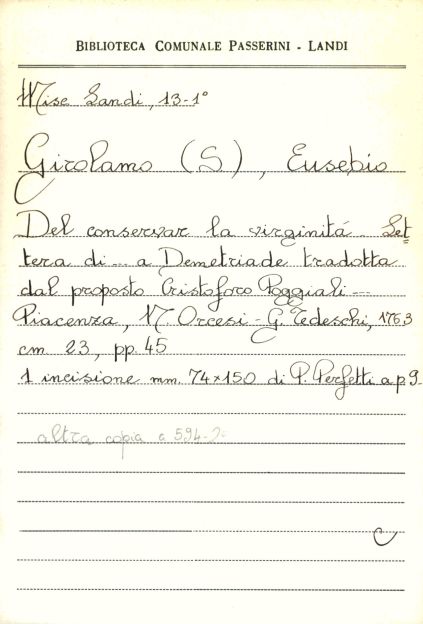 BIBLIOTECA COMUNALE PASSERINI - LANDI
Mise Landi, 13-1°
Girolamo (S), Eusebio
Del conservar la virginitá - Let
tera di ... a Demetriade tradotta
dal proposto Cristoforo Poggiali ...
Piacenza, N. Orcesi - G. Tedeschi, 1763
cm. 23, pp. 45
1 incisione mm. 74x150 di P. Perfetti a p 9-
altra copia
C